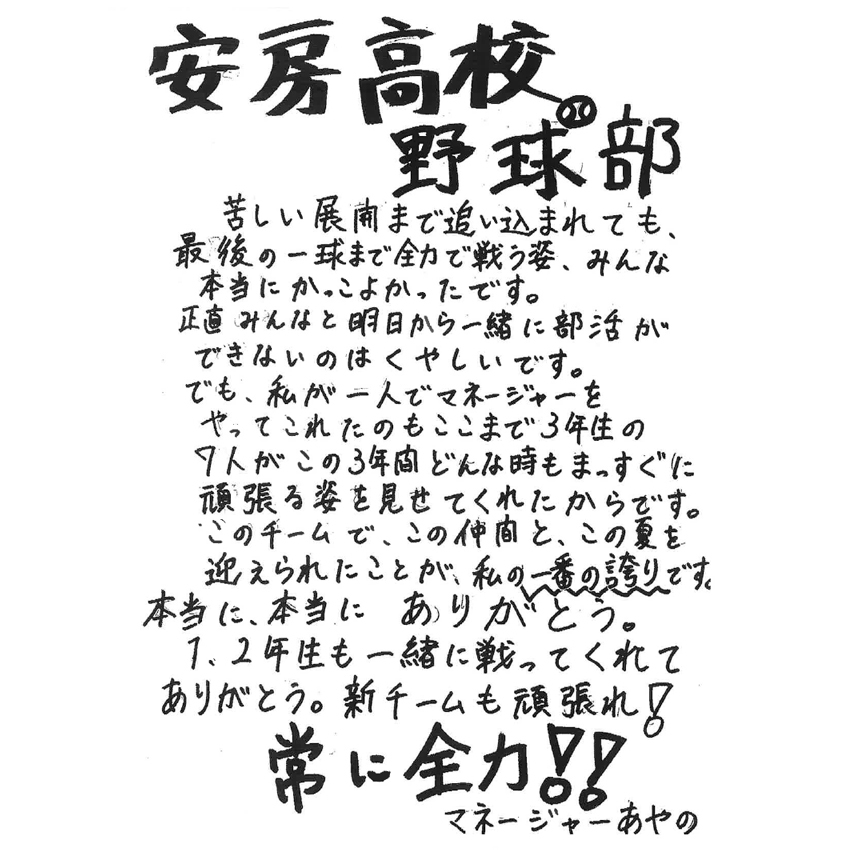 安房高校
野球部
苦しい展開まで追い込まれても、
最後の一球まで全力で戦う姿、みんな
本当にかっこよかったです。
正直みんなと明日から一緒に部活が
できないのはくやしいです。
でも、私が一人でマネージャーを
やってこれたのもここまで3年生の
7人がこの3年間どんな時もまっすぐに
頑張る姿を見せてくれたからです。
このチームで、この仲間と、この夏を
迎えられたことが、私の一番の誇りです。
本当に、本当に ありがとう。
1、2年生も一緒に戦ってくれて
ありがとう。新チームも頑張れ!
常に全力!!
マネージャーあやの